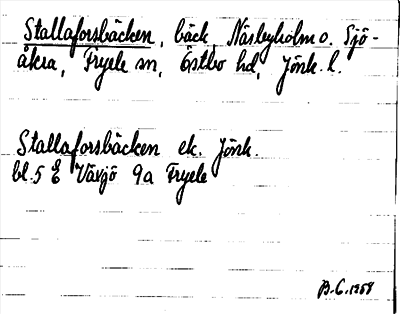 Stallaforsbäcken, bäck, Näsbyholm o. Sjö-
åkra, Fryele sn, Östbo hd, Jönk. l.
Stallaforsbäcken ek. Jönk.
bl. 5 E Växjö 9a Fryele
B.C. 1958